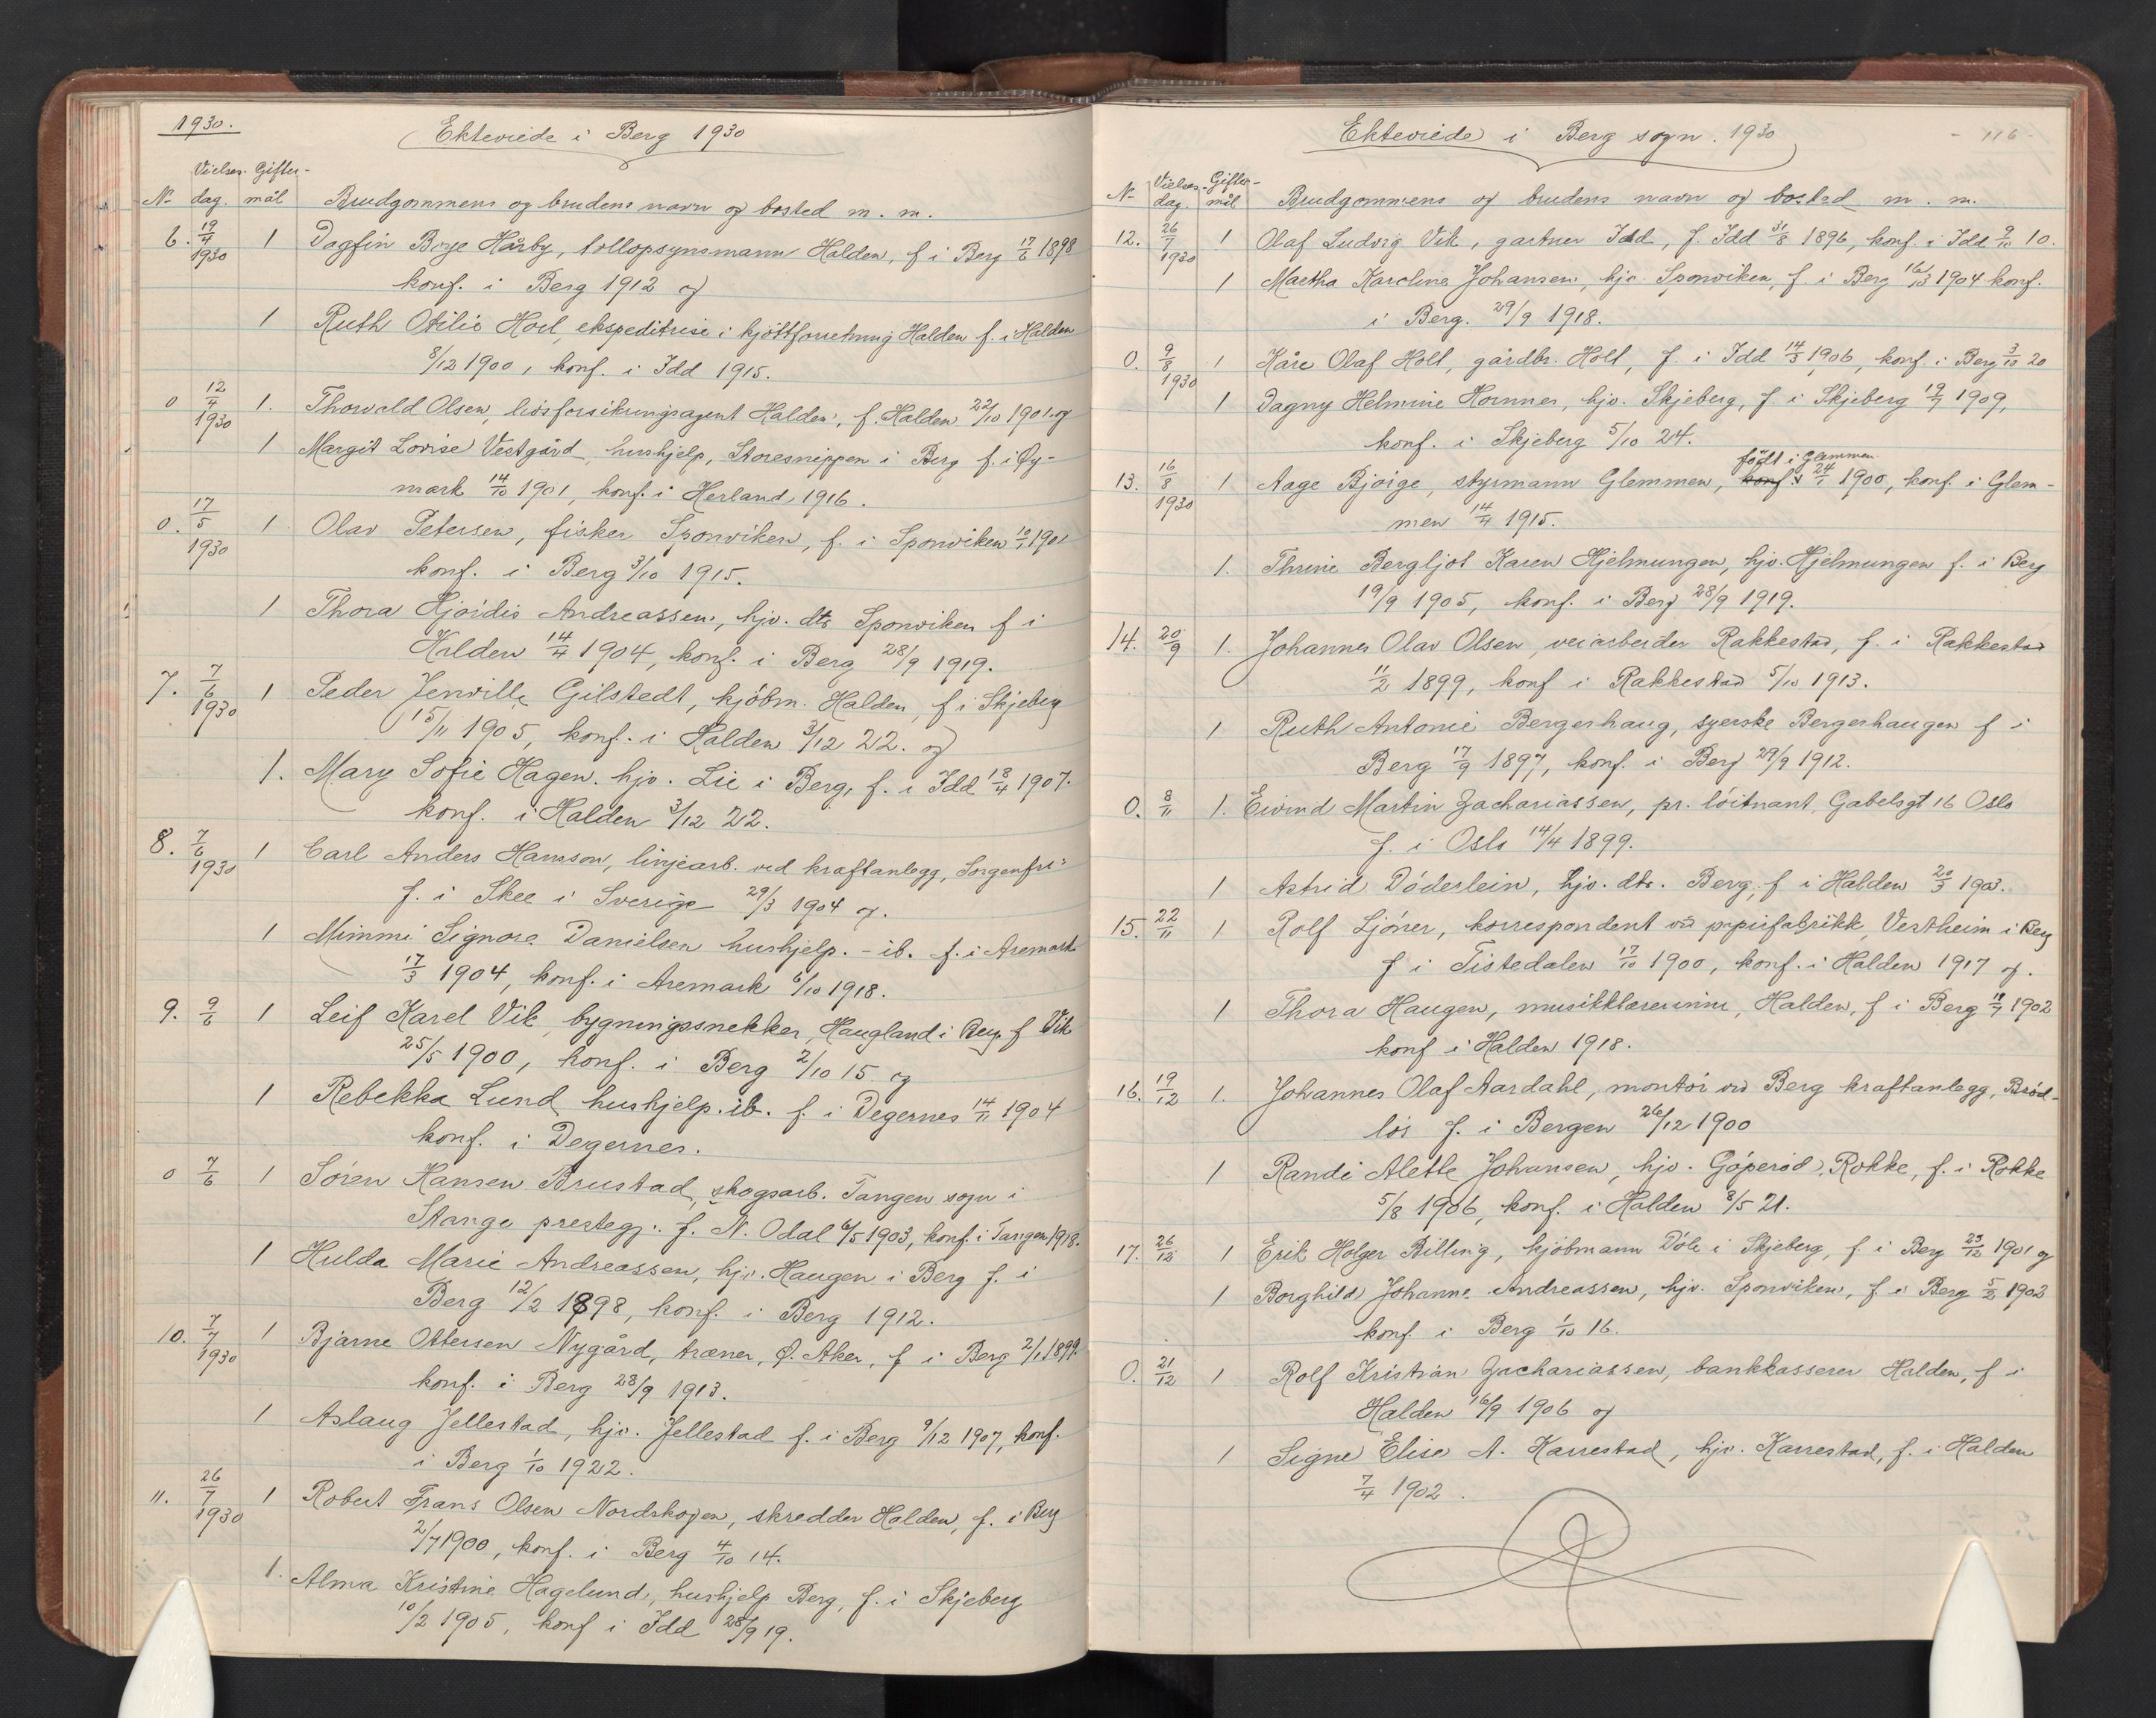 1930.
Ekteviede i Berg 1930
Vielses- Gifter-
No dag. mål Brudgommens og brudens navn og bosted m. m.
6. 19/4 1930 1 Dagfin Borge Hårby, tollopsynsmann Halden, f i Berg 17/6 1898
konf. i Berg 1912 og
1 Ruth Otilie Hoel, ekspeditrise i kjöttforretning Halden f. i Halden
8/12 1900, konf. i Idd 1915.
0 12/4 1930 1. Thorvald Olsen, livsforsikringsagent Halden, f. Halden 22/10 1901. og
1 Margit Lovise Vestgård, hushjelp, Storesnippen i Berg f. i Øy-
mark 14/10 1901, konf. i Herland 1916.
0. 17/5 1930 1 Olav Petersen, fisker Sponviken, f. i Sponviken 10/1 1901
konf. i Berg 3/10 1915.
1 Thora Hjördis Andreassen, hjv. dtr Sponviken f i
Halden 14/4 1904, konf. i Berg 28/9 1919.
7. 7/6 1930 1 Peder Jenville Gilstedt, kjöbm. Halden, f i Skjeberg
15/11 1905, konf. i Halden 3/12 22. og
1. Mary Sofie Hagen. hjv. Lie i Berg, f. i Idd 18/4 1907.
konf. i Halden 3/12 22.
8. 7/6 1930 1 Carl Anders Hansson, linjearb. ved kraftanlegg, Sorgenfri
f. i Skee i Sverige 29/3 1904 og.
1 Mimmi Signora Danielsen hushjelp. - ib. f. i Aremark
17/3 1904, konf. i Aremark 6/10 1918.
9. 9/6 1 Leif Karel Vik, bygningssnekker, Haugland i Berg. f Vik
25/5 1900, konf. i Berg 2/10 15 og
1 Rebekka Lund hushjelp. ib. f. i Degernes 14/11 1904
konf. i Degernes.
0 7/6 1 Sören Hansen Brustad, skogsarb. Tangen sogn i
Stange prestegj. f. N. Odal 6/5 1903, konf. i Tangen 1918.
1 Hulda Marie Andreassen, hjv. Haugen i Berg f. i
Berg 12/2 1898, konf. i Berg 1912.
10. 7/7 1930 1 Bjarne Ottersen Nygård, træner, Ø. Aker, f i Berg 2/1 1899.
konf. i Berg 28/9 1913.
1 Aslaug Jellestad, hjv. Jellestad f. i Berg 9/12 1907, konf.
i Berg 1/10 1922.
11. 26/7 1930 1 Robert Frans Olsen Nordskogen, skredder Halden, f. i Berg
2/7 1900, konf. i Berg 4/10 14.
1. Alma Kristine Hagelund, hushjelp Berg, f. i Skjeberg
10/2 1905, konf i Idd 28/9 19.
Ekteviede i Berg sogn. 1930
- 116 -
Vielses- Gifter-
No dag. mål Brudgommens og brudens navn og bosted m. m.
12. 26/7 1930 1 Olaf Ludvig Vik, gartner Idd, f. Idd 31/8 1896, konf. i Idd 9/10 10.
1 Martha Karoline Johansen, hjv. Sponviken, f. i Berg 16/3 1904 konf.
i Berg. 29/9 1918.
0. 9/8 1930 1 Kåre Olaf Holt, gårdbr. Holt, f. i Idd 14/3 1906, konf. i Berg 3/10 20
1 Dagny Helmine Hornnes, hjv. Skjeberg, f. i Skjeberg 19/7 1909,
konf. i Skjeberg 5/10 24.
födt i Glemmen
13. 16/8 1930 1 Aage Bjöige, styrmann Glemmen, konf. i 24/1 1900, konf. i Glem-
men 14/4 1915.
1. Thrine Bergljot Karen Hjelmungen, hjv. Hjelmungen f. i Berg
19/9 1905, konf. i Berg 28/9 1919.
14. 20/9 1. Johannes Olav Olsen, veiarbeider Rakkestad, f. i Rakkestad
11/2 1899, konf i Rakkestad 5/10 1913.
1 Ruth Antonie Bergerhaug, syerske Bergerhaugen f i
Berg 17/9 1897, konf. i Berg 29/9 1912.
0. 8/11 1. Eivind Martin Zachariassen, pr. löitnant, Gabelsgt 16 Oslo
f. i Oslo 14/4 1899.
1 Astrid Döderlein, hjv. dtr. Berg, f i Halden 20/3 1903.
15. 22/11 1 Rolf Sjöner, korrespondent ved papirfabrikk, Vestheim i Berg
f i Tistedalen 17/10 1900, konf. i Halden 1917 og.
1 Thora Haugen, musikklærerinne, Halden, f i Berg 18/7 1902
konf i Halden 1918.
16. 19/12 1. Johannes Olaf Aardahl, montör ved Berg kraftanlegg, Bröd-
lös f. i Bergen 26/12 1900
1 Randi Alette Johansen, hjv. Göperöd, Rokke, f. i Rokke
5/8 1906, konf. i Halden 8/5 21.
17. 26/12 1 Erik Holger Billing, kjöbmann Döle i Skjeberg, f. i Berg 23/12 1901 og
1 Borghild Johanne Andreassen, hjv. Sponviken, f i Berg 5/2 1902
konf. i Berg 1/10 16.
0. 21/12 1 Rolf Kristian Zachariassen, bankkasserer Halden, f i
Halden 16/9 1906 og
1 Signe Elise A. Karrestad, hjv. Karrestad, f. i Halden
7/4 1902.